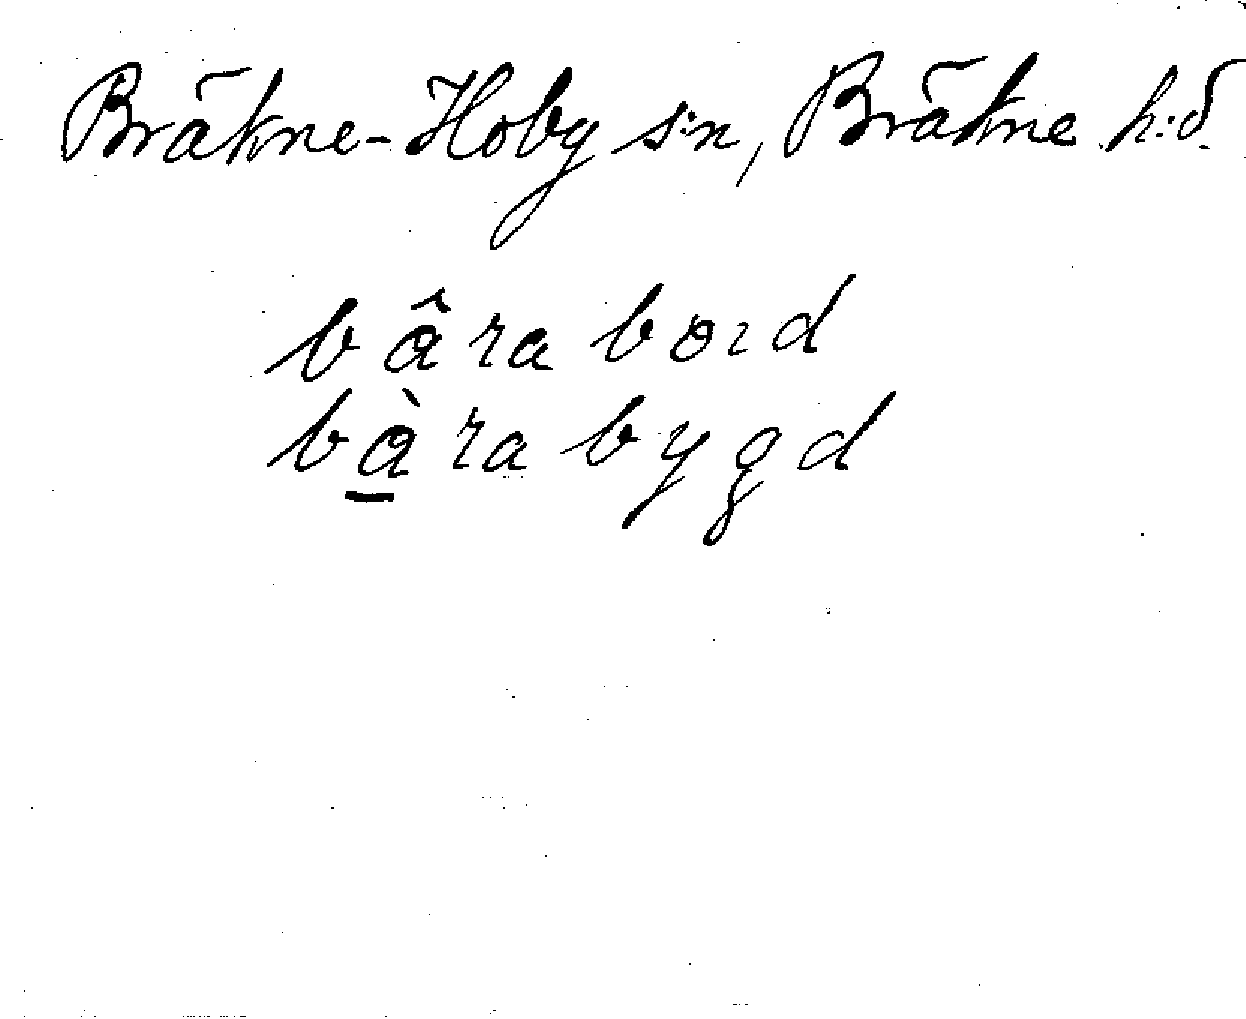 Bräkne-Hoby s:n, Bräkne h:d.
bâra bord
bàra bygd